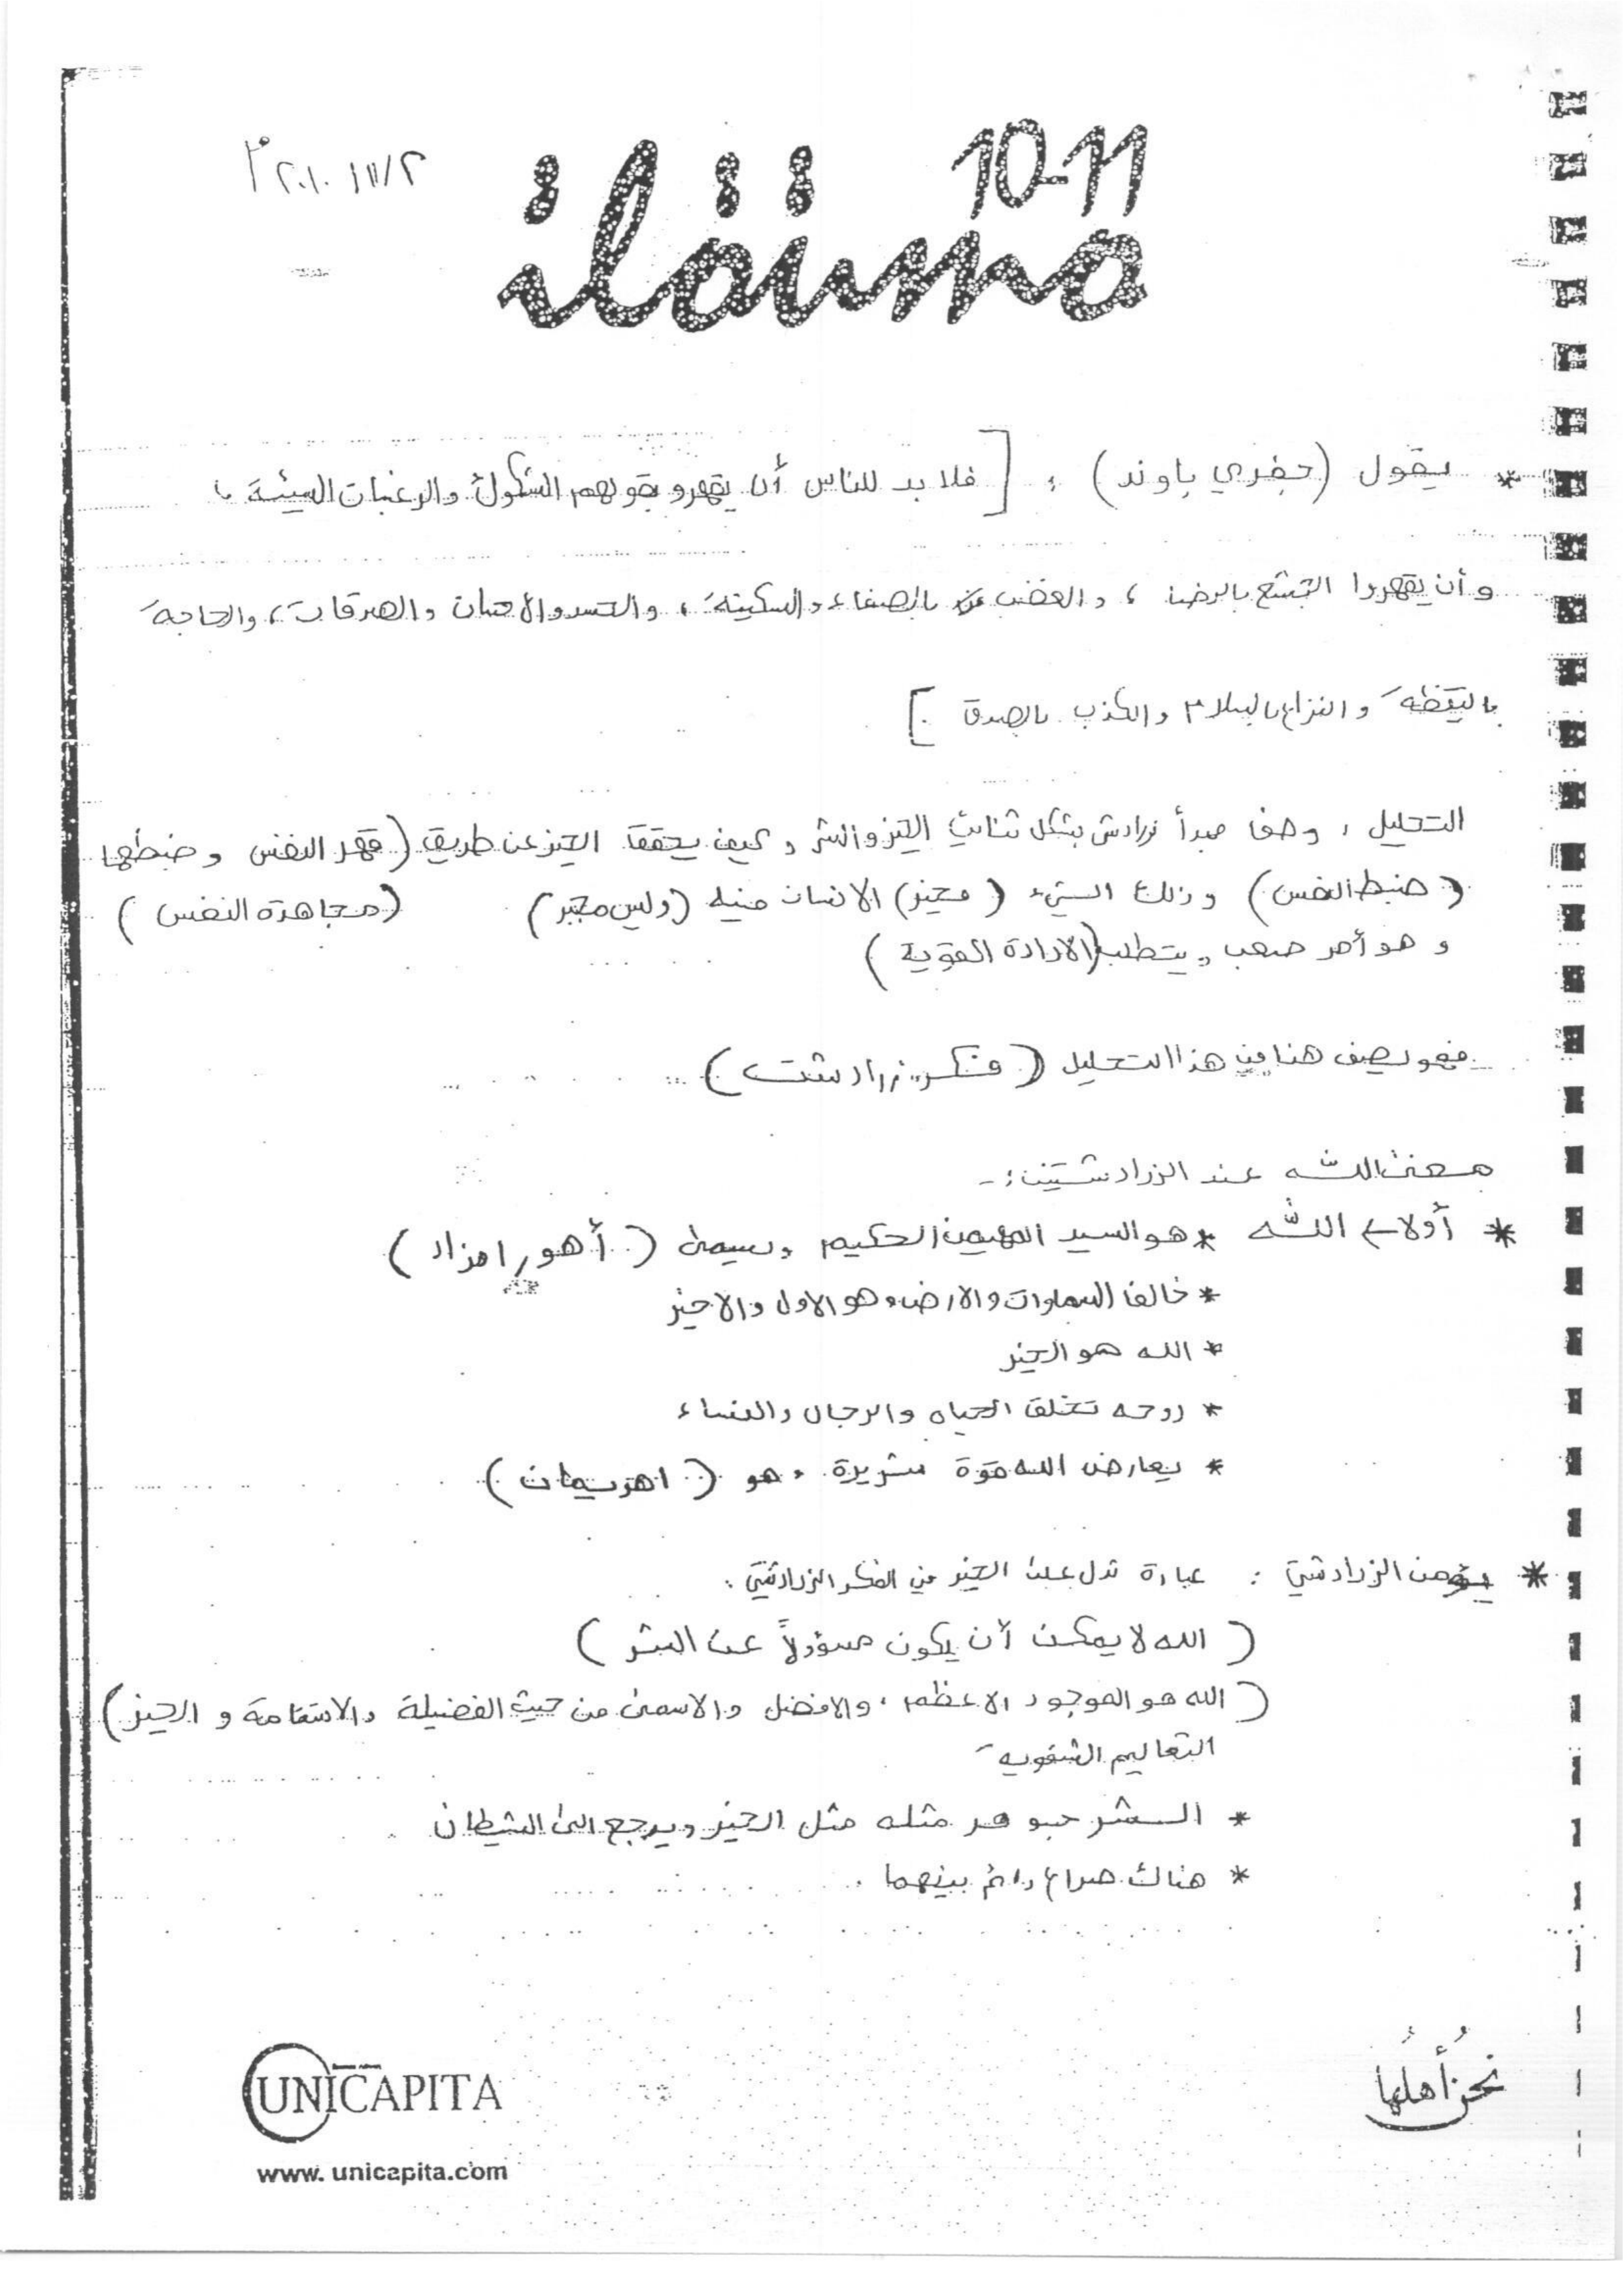 10-11
٢٠١٠/١١/٢ م
ilöüma
* يقول (جفري باوند) : [ فلا بد للناس أن يقهرو بقولهم الشكوك والرغبات السيئة ،
وأن يقهروا الجشع بالرضا ، والغضب بالصفاء والسكينة ، والحسد والاحسان والصدقات ، والحاجة
باليقظة والنزاع بالسلام والكذب بالصدق . ]
التحليل : وصف مبدأ زرادش بشكل ثنائي الخير والشر وكيف يحقق الخير عن طريق (قهر النفس وضبطها
(ضبط النفس) وذلك الشيء (مخير) الانسان فيه (وليس مجبر) (مجاهدة النفس)
وهو أمر صعب ويتطلب (الارادة القوية)
فهو يصف هنا في هذا التحليل (فكر زرادشت)
معنى الله عند الزرادشتين :-
* أولا ← الله * هو السيد المهيمن الحكيم ويسمى (أهورامزاد)
* خالق السماوات والارض وهو الاول والاخير
* الله هو الخير
* روحه تخلق الحياه والرجال والنساء
* يعارض الله قوة شريرة وهو (اهريمان)
* يؤمن الزرادشتي : عبارة تدل على الخير في الفكر الزرادشتي :
(الله لا يمكن أن يكون مسؤولاً عن الشر)
(الله هو الموجود الاعظم ، والافضل والاسمى من حيث الفضيلة والاستقامة والخير)
التعاليم الشفوية
* الشر جوهر مثله مثل الخير ويرجع الى الشيطان
* هناك صراع دائم بينهما .
UNICAPITA
نحن أهلها
www.unicapita.com